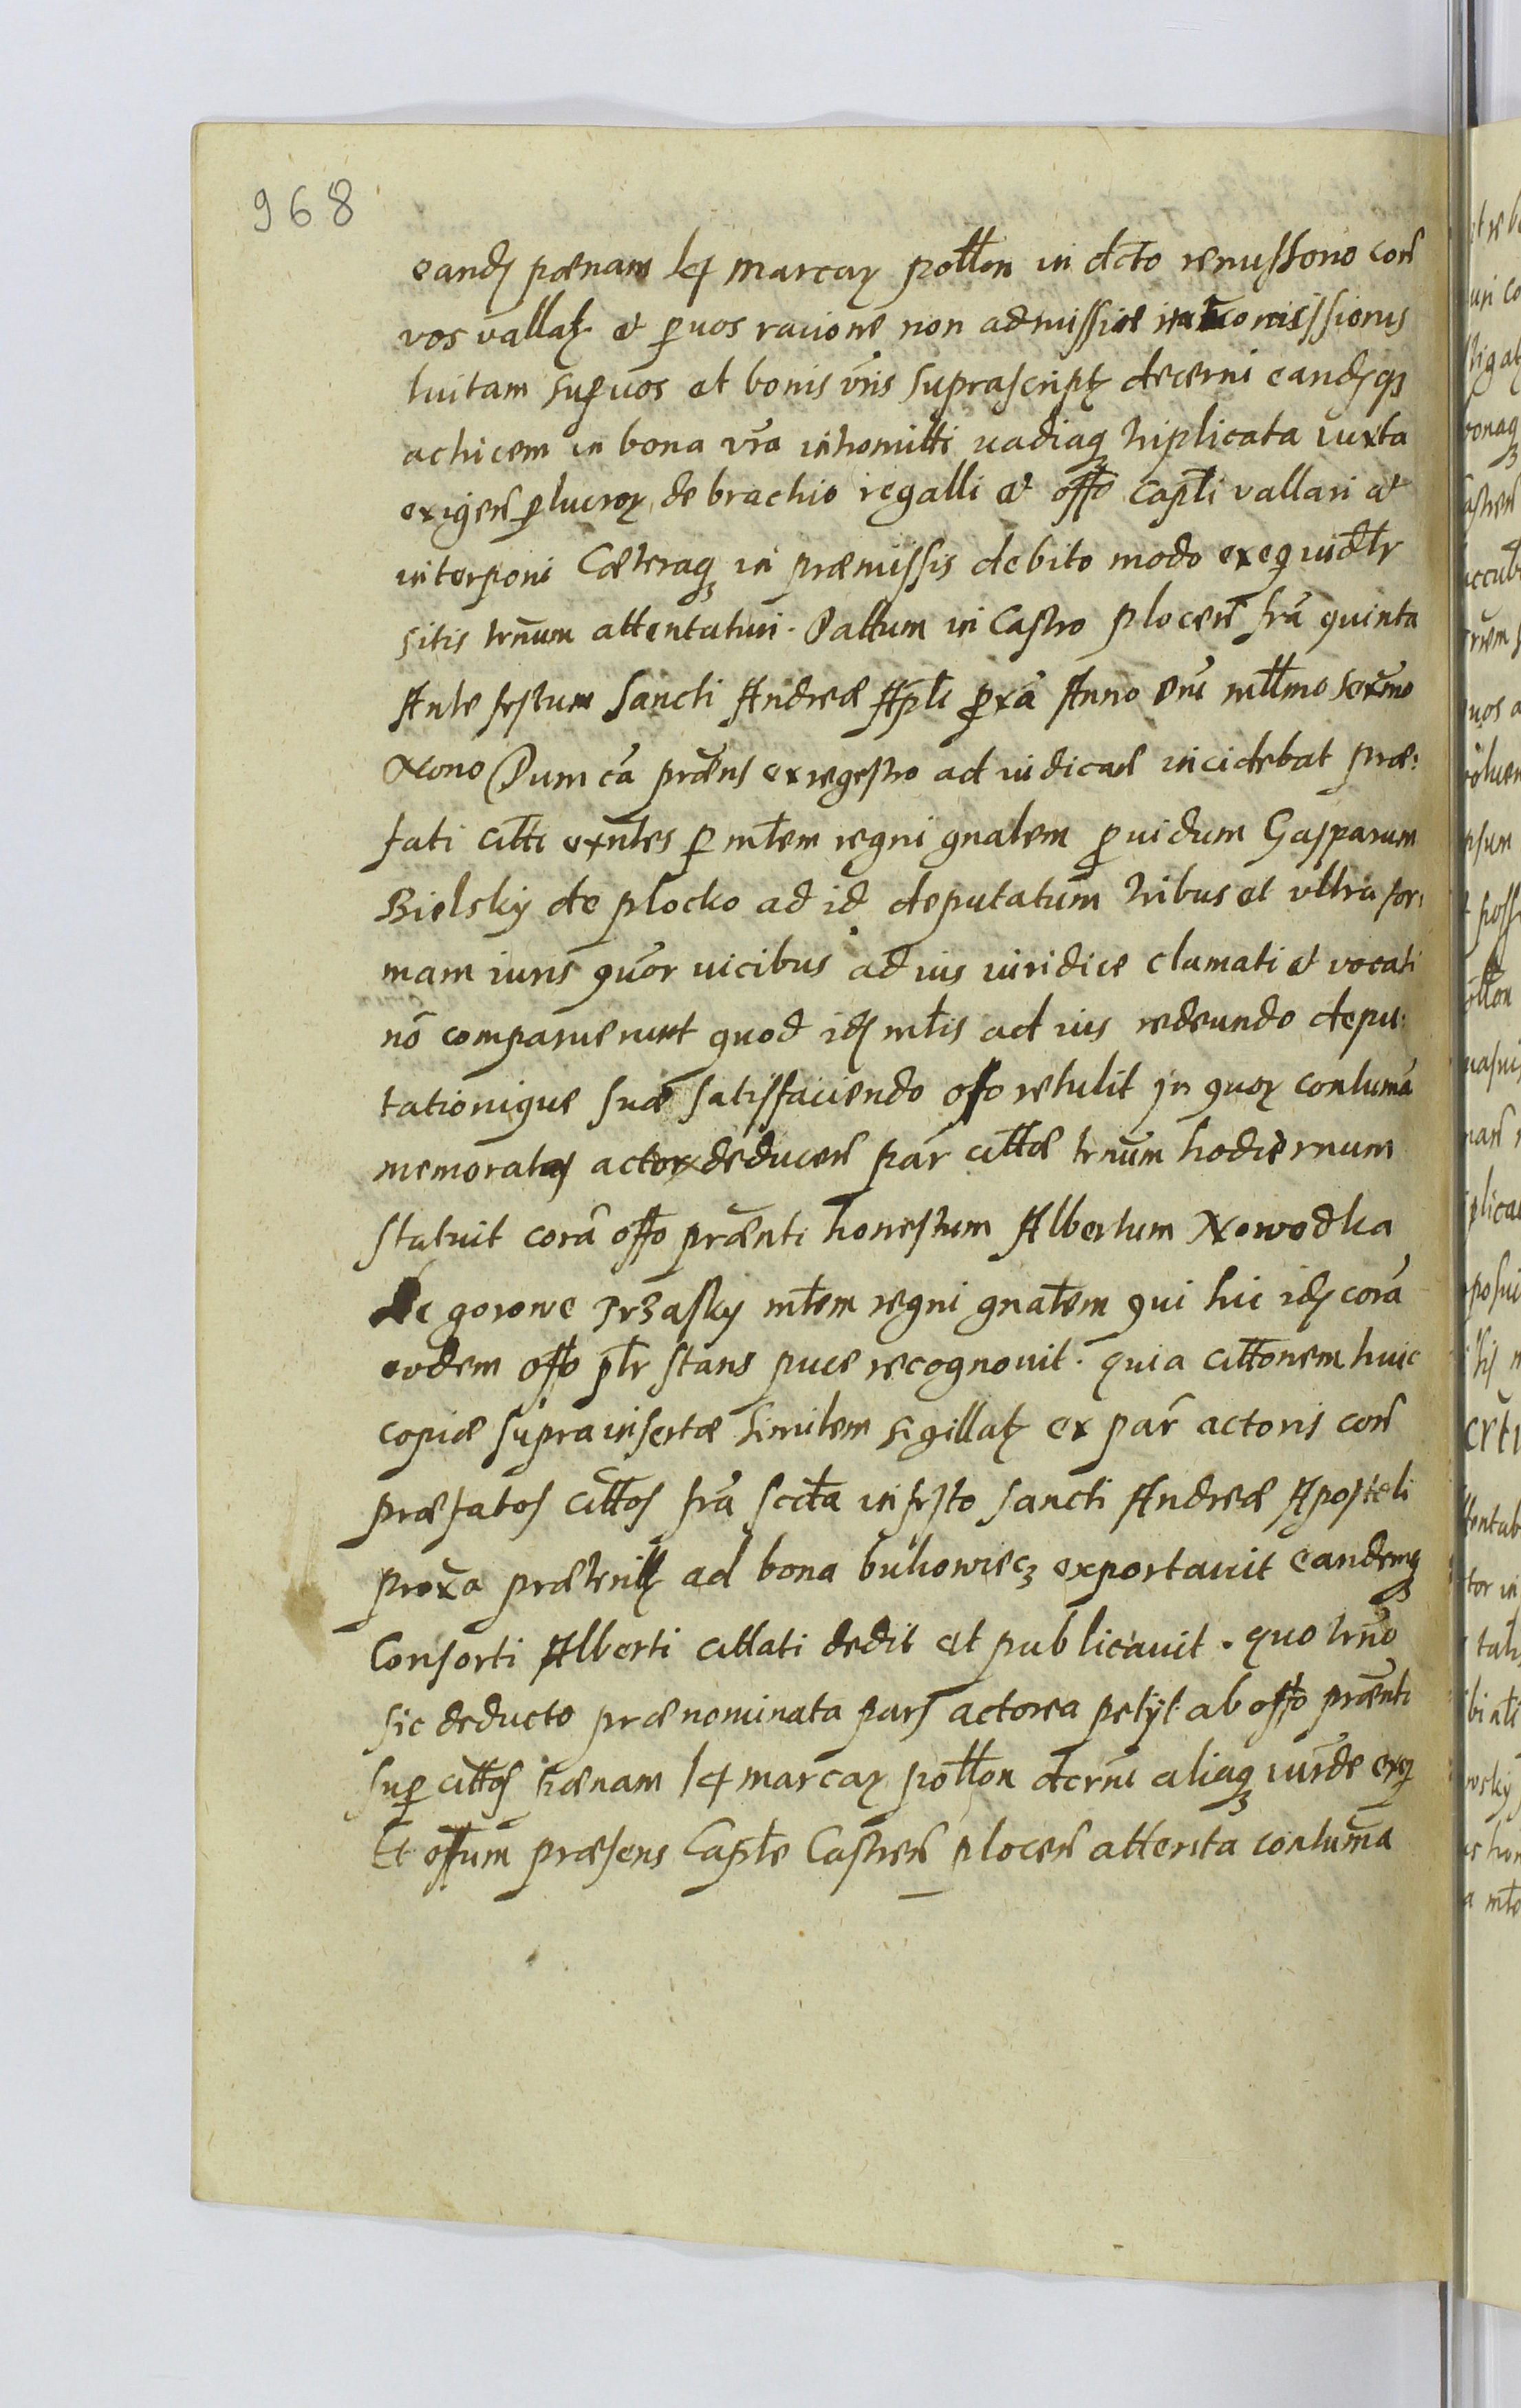 968
eandē pœnam 14 marcarꝫ poĺĺon in dcto remissono con̄
vos vallatꝫ et p̱ vos racione non admissiæ intromissionis
luitam sup̱ vos et bonis vr̄is suprascriptꝫ decerni eandēqꝫ
actricem in bona vr̄a intromitti vadiaqꝫ triplicata iuxta
exigen̄ p̱lucrorꝫ de brachio regalli et offo Capĺi vallari et
interponi Cæteraqꝫ in præmissis debito modo exequi vidĺr
sitis tr̄num attentaturi. Dattum in Castro plocen̄ fr̄a quinta
Ante festum Sancti Andreæ Apĺi p̱xā Anno Dn̄i mĺĺmo sexn̄mo
Nono Dum cā præn̄s ex regestro ad iudican̄ incidebat præ:
fati citti exn̄tes p̱ mt̄em regni gn̄alem p̱uidum Gasparum
Bielsky de plocko ad id deputatum tribus et vltra for:
mam iuris quōr vicibus ad ius iuridice clamati et vocati
nō comparuerunt quod idē mt̄is ad ius redeundo depu:
tationique suæ satisfaciendo offo retulit In quorꝫ contumā
memoratus actor deducen̄ pār cittæ tr̄num hodiernum
statuit corā offo præn̄ti honestum Albertum Nowodka
De gorowe Trzasky mt̄em regni gn̄alem qui hic idē corā
eodem offo pt̄r stans puce recognouit. quia cittonem huic
copiæ supra insertæ similem sigillatꝫ ex pār actoris con̄
præfatos cittos fr̄a scda in festo Sancti Andreæ Aposteli
proxa præteritꝫ ad bona bukowiecz exportauit eandemqꝫ
Consorti Alberti cittati dedit et publicauit. quo tr̄no
sic deducto prænominata pars actorea petÿt ab offo præn̄ti
sup̱ cittos pœnam 14 marcarꝫ poĺĺon dcrni aliaqꝫ iurde exeqꝫ
Et offum præsens Capt̄e Castren̄ plocen̄ attenta contuma